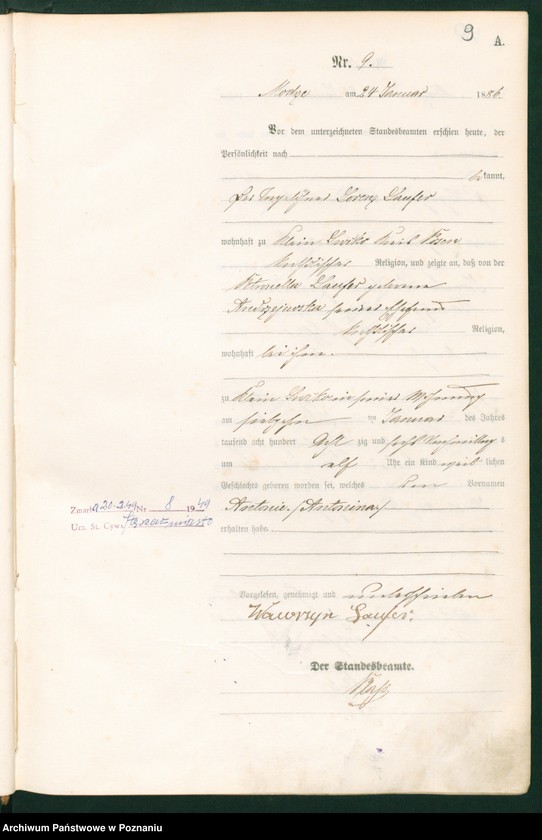 9
A.
Nr. 9.
am 24 Januar 1886
Vor dem unterzeichneten Standesbeamten erschien heute, der
Persönlichkeit nach
bekannt,
Lorenz Laufer
wohnhaft zu Klein Kreis Posen
katholischer Religion, und zeigte an, daß von der
Petronella Laufer geborene
Andrzejewska seiner Ehefrau
katholischer Religion,
wohnhaft bei ihm.
zu Klein in seiner Wohnung
am siebzehn ten Januar des Jahres
tausend acht hundert acht zig und sechs Vormittags
um elf Uhr ein Kind weib lichen
Geschlechts geboren worden sei, welches den Vornamen
Antonie /Antonina/
erhalten habe.
Zmarła 20.2.49 Nr 8 1949
Urz. St. Cyw.
Vorgelesen, genehmigt und unterschrieben
Wawrzyn Laufer.
Der Standesbeamte.
Archiwum Państwowe w Poznaniu